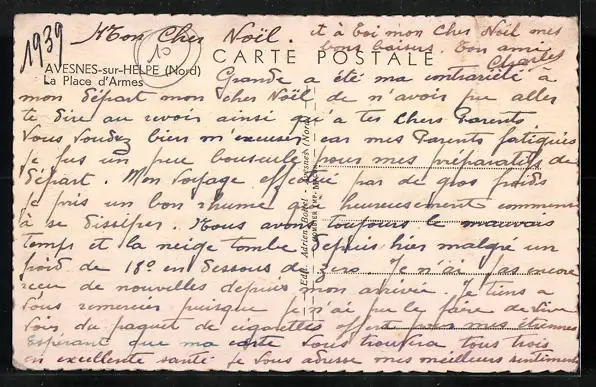 1939
Mon Cher Noël. et à toi mon Cher Noël mes
bons baisers. Ton ami
Charles
CARTE POSTALE
AVESNES-sur-HELPE (Nord)
La Place d'Armes
Grande a été ma contrariété à
mon départ mon cher Noël de n'avoir pu aller
te dire au revoir ainsi qu'a tes Chers Parents
Vous voudrez bien m'excuser car mes Parents fatigués
je fus un peu bousculé pour mes préparatifs de
départ. Mon voyage effectué par de gros froids
je pris un bon rhume qui heureusement commence
à se dissiper. Nous avons toujours le mauvais
temps et la neige tombe depuis hier malgré un
froid de 18° en dessous de zero. Je n'ai pas encore
recu de nouvelles depuis mon arrivée. Je tiens a
vous remercier puisque je n'ai pu le faire de vive
voix du paquet de cigarettes offert pour mes étrennes
Espérant que ma carte vous trouvera tous trois
en excellente santé je vous adresse mes meilleurs sentiments
Edit. Adrien Bobet - Avesnes (Nord)